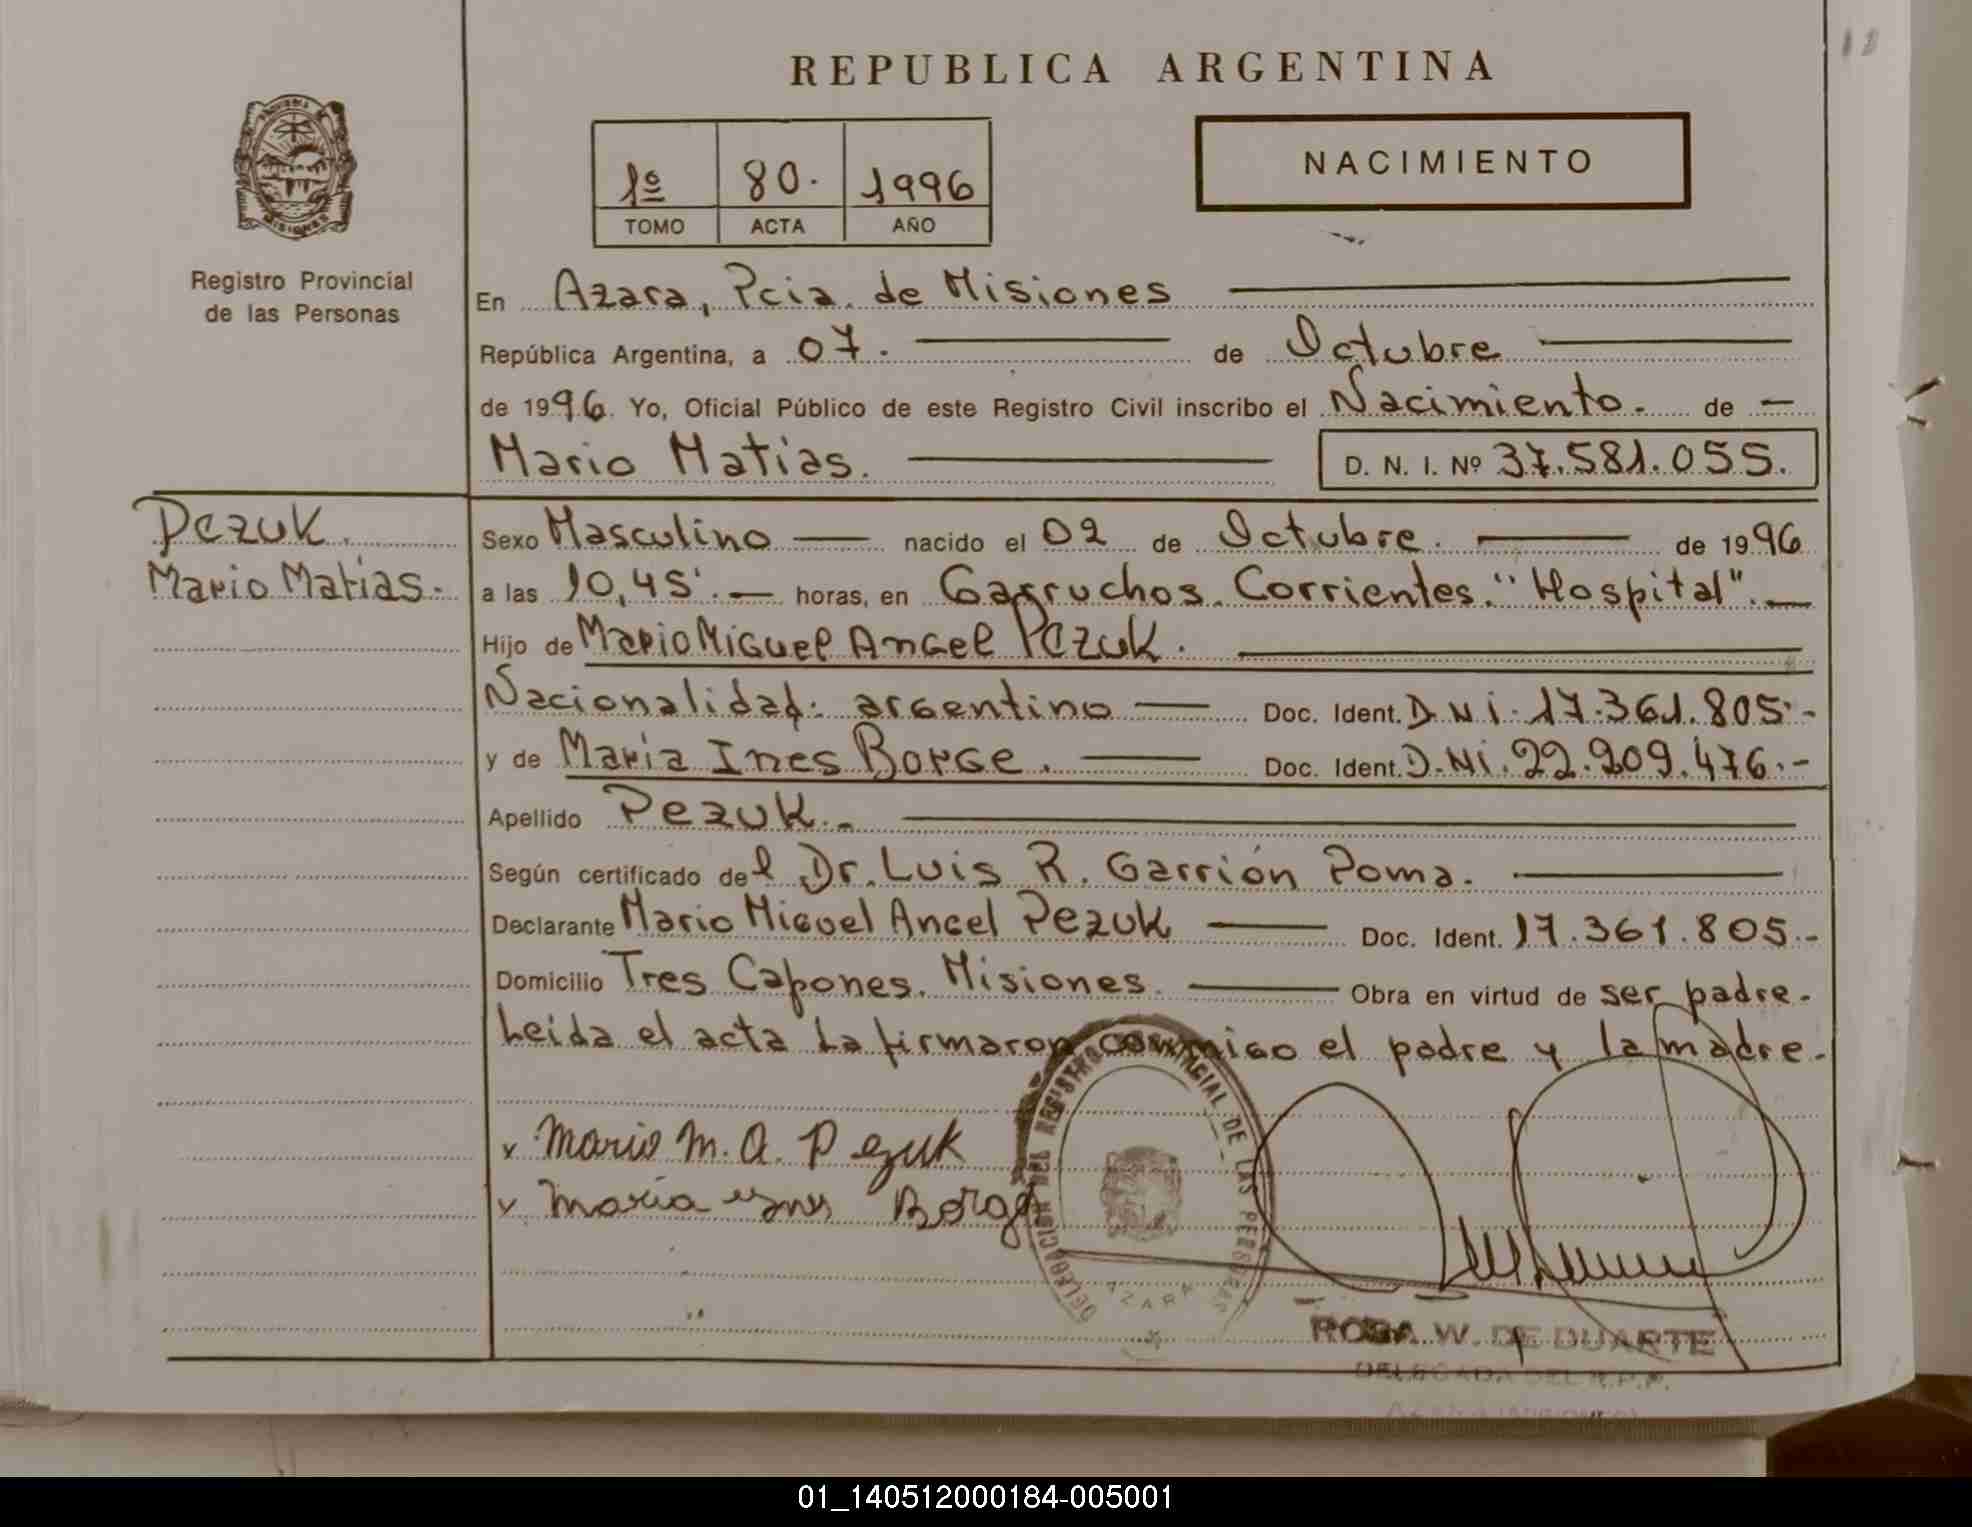 REPUBLICA ARGENTINA
NACIMIENTO
1º 80. 1996
TOMO ACTA AÑO
MISIONES
Registro Provincial
de las Personas
En Azara, Pcia. de Misiones
República Argentina, a 07. de Octubre
de 1996. Yo, Oficial Público de este Registro Civil inscribo el Nacimiento. de
Mario Matías. D. N. I. Nº 37.581.055.
Pezuk.
Mario Matías.
Sexo Masculino nacido el 02 de Octubre. de 1996
a las 10,45'. horas, en Garruchos. Corrientes. "Hospital".
Hijo de Mario Miguel Angel Pezuk.
Nacionalidad: argentino Doc. Ident. D.N.i. 17.361.805.-
y de María Ines Borge. Doc. Ident. D.Ni. 22.209.476.-
Apellido Pezuk.-
Según certificado del Dr. Luis R. Garrión Poma.
Declarante Mario Miguel Angel Pezuk Doc. Ident. 17.361.805.-
Domicilio Tres Capones. Misiones. Obra en virtud de ser padre.
Leida el acta la firmaron conmigo el padre y la madre.
x Mario M. A. Pezuk
x Maria Borge
DELEGACION DEL REGISTRO PROVINCIAL DE LAS PERSONAS
AZARA
ROSA W. DE DUARTE
DELEGADA DEL R.P.P.
01_140512000184-005001